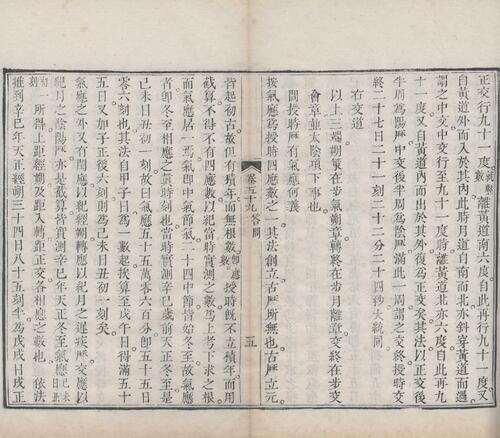 正交行九十一度離黃道南六度自此再行九十一度又
自黃道外而入於其內此時月道自南而北亦斜穿黃道而過
謂之中交中交行至九十一度時離黃道北亦六度自此再行九
十一度又自黃道內而出於其外復爲正交矣其法以正交後
半周爲陽厯中交後半周爲陰厯滿此一周謂之交終授時交
終二十七日二十一刻二十二分二十四秒大統同
右交道
以上三端朔策在步氣朔章轉終在步月離章交終在步交
會章並太陰項下事也
問授時厯有氣應何義
按氣應爲授時四應數之一其法創立古厯所無也古厯立元
卷五十九 答問 五
皆起初古故但有積年而無根數即應數授時旣不立積年而用
截算不得不有四應數以紀當時實測之數爲上考下求之根
而氣應居一焉氣即中氣節氣二十四中節皆始冬至故氣應
者即冬至相應之眞時刻也當時實測辛巳歲前天正冬至是
己未日丑初一刻故曰氣應五十五萬零六百分即五十五日
零六刻也其法自甲子日爲一數起挨至戊午日得滿五十
五日又加子正後六刻則爲己未日丑初一刻矣
氣應之外又有閏應以紀經朔轉應以紀月之遲疾厯交應以
紀月之陰陽厯亦是截算皆實測辛巳年天正冬至氣應己未日丑
初一刻所得上距經朔及距入轉距正交各相應之數也 依法
推到辛巳年天正經朔三十四日八十五刻半爲戊戌日戌正